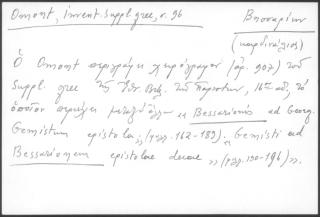 Omont, invent. suppl. grec, σ. 96
Βησσαρίων
(καρδινάλιος)
Ὁ Omont περιγράφει χειρόγραφον (ἀρ. 907) τοῦ
Suppl. grec τῆς Ἐθν. Βιβ. τῶν Παρισίων, 16ου αἰ., τὸ
ὁποῖον περιέχει μεταξὺ ἄλλων "Bessarionis ad Georg.
Gemistum epistola" (σελ. 162-189). "Gemisti ad
Bessarionem epistolae duae" (σελ. 190-196)».